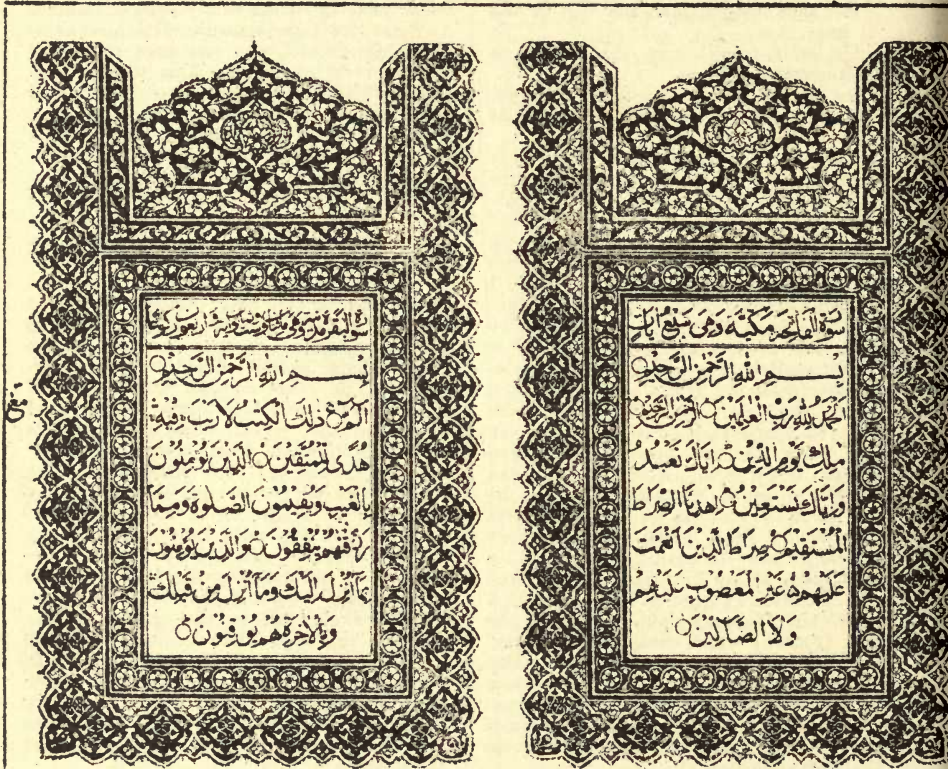 سورة الفاتحة مكية وهي سبع آيات
بسم الله الرحمن الرحيم
الحمد لله رب العلمين الرحمن الرحيم
ملك يوم الدين اياك نعبد
واياك نستعين اهدنا الصراط
المستقيم صراط الذين انعمت
عليهم غير المغضوب عليهم
ولا الضآلين
سورة البقرة
بسم الله الرحمن الرحيم
الم ذلك الكتب لا ريب فيه
هدى للمتقين الذين يؤمنون
بالغيب ويقيمون الصلوة ومما
رزقنهم ينفقون والذين يؤمنون
بما انزل اليك وما انزل من قبلك
وبالاخرة هم يوقنون